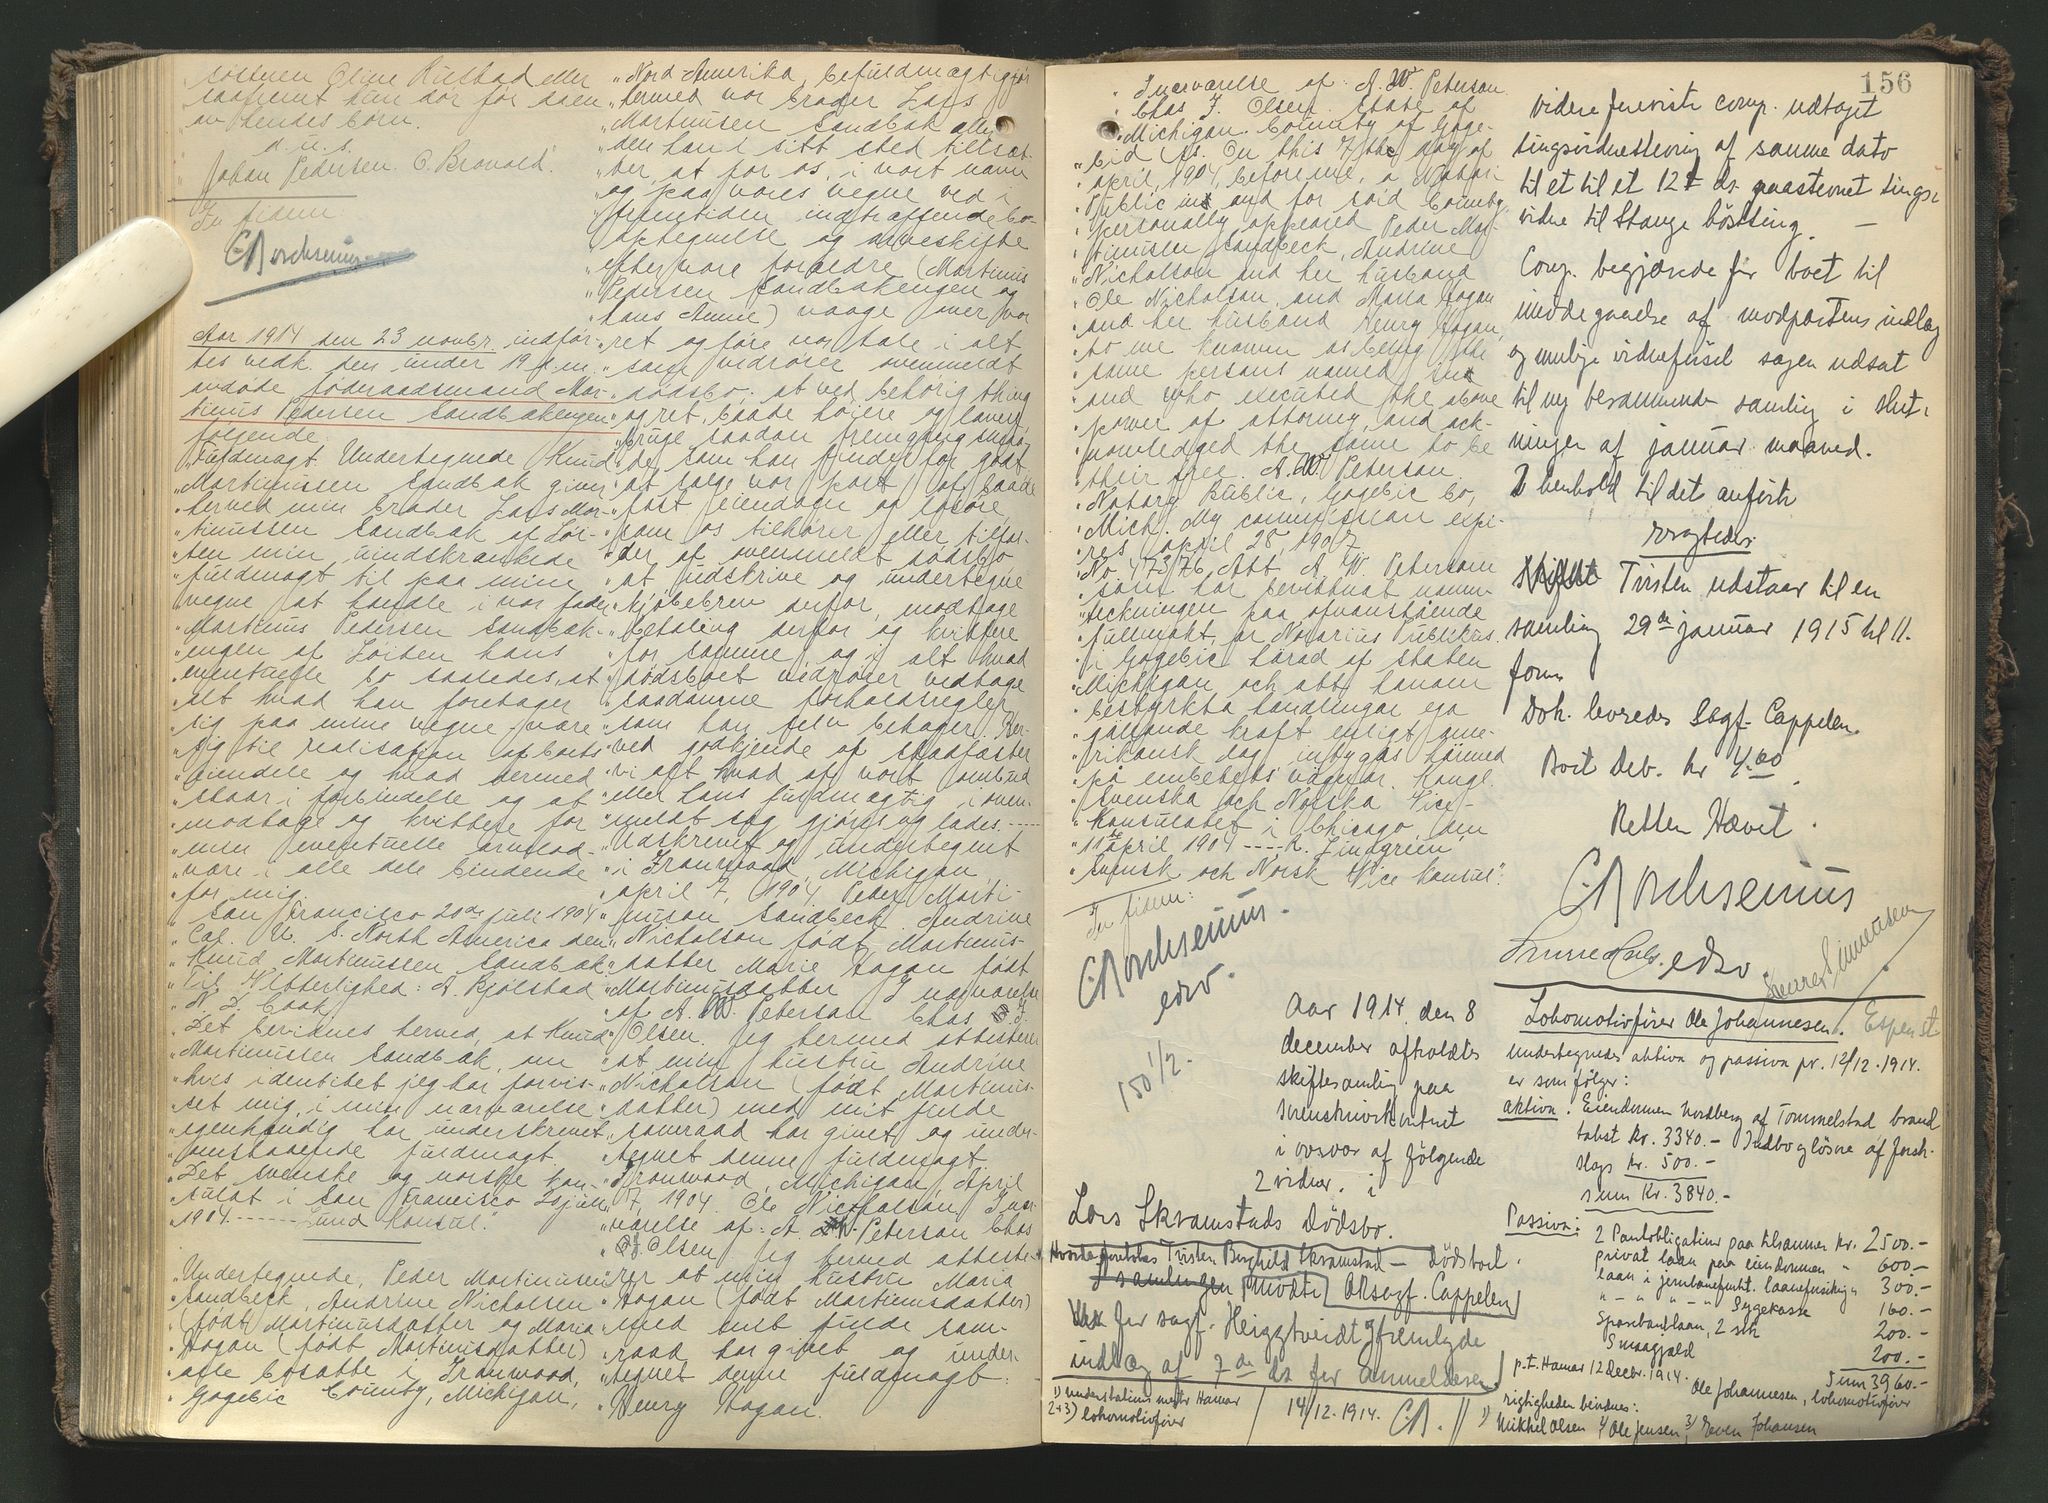 søsteren Oline Rustad eller
saafremt hun dør før ham
av hendes børn.
d. u. s.
Johan Pedersen. O. Brovold.
In fidem:
Aar 1914 den 23 novbr. indfør-
tes vedk. den under 19 d. m.
avdøde føderaadsmand Mar-
tinius Pedersen Sandbakengen
følgende
"Fuldmagt. Undertegnede Knud
"Martinussen Sandbak giver
"herved min broder Lars Mar-
"tinussen Sandbak af Løi-
"ten min uindskrænkede
"fuldmagt til paa mine
"vegne at handle i vor fader
"Martinus Pedersen Sandbak-
"engen af Løiten hans
"eventuelle bo saaledes, at
"alt hvad han foretager
"sig paa mine vegne være
"sig til realisation af boets
"eiendele og hvad dermed
"staar i forbindelse og at
"modtage og kvittere for
"min eventuelle arvelod
"være i alle dele bindende
"for mig.
"San Francisco 20de juli 1904
"Cal. U. S. North America den
"Knud Martinussen Sandbak.
"Til Vitterlighed: A. Kjølstad
"N. J. Cook
"Det bevidnes herved, at Knud
"Martinussen Sandbak, om
"hvis identitet jeg har forvis-
"set mig, i min nærværelse
"egenhændig har underskrevet
"omstaaende fuldmagt.
"Det svenske og norske kon-
"sulat i San Francisco juli
"1904. ------ Lund Konsul."
"Undertegnede, Peder Martinusen
"Sandbeck, Andrine Nicholsen
"(født Martinusdatter og Maria
"Hogan (født Martinusdatter)
"alle bosatte i Ironwood,
"Gogebic County, Michigan,
"Nord-Amerika, befuldmægtigjør
"hermed vor broder Lars
"Martinusen Sandbak eller
"den han i sitt sted tiltsæt-
"ter, at for os, i vort navn
"og paa vores vegne ved i
"fremtiden indtræffende bo-
"optegnelse og arveskifte
"efter vore forældre (Martinus
"Pedersen Sandbakengen og
"hans Anne) vaage over vor
"ret og føre vor tale i alt
"som vedrører ovenmeldt
"dødsbo; at ved behørig thing
"og ret, baade høiere og lavere,
"bruge saadan fremgangsmaa-
"de, som han finder for godt
"at sælge vor part af baade
"fast eiendom og løsøre
"som os tilhører eller tilfal-
"der af ovenmeldt dødsbo
"at udskrive og undertegne
"kjøbebrev derfor, modtage
"betaling derfor og kvittere
"for samme og i alt hvad
"dødsboet vedrører vedtage
"saadanne forholdsregler,
"som han selv behager. Her-
"ved godkjende og stadfæster
"vi alt hvad af vort ombud
"eller hans fuldmægtig i oven-
"meldt sag gjøres og lades. ----
"Udskrevet og undertegnet
"i Ironwood, Michigan,
"april 7, 1904. Peder Marti-
"nusen Sandbeck. Andrine
"Nicholson født Martinus-
"datter Marie Hogan født
"Martinusdatter I nærværelse
"af A. W. Peterson Chas. J.
"Olsen. Jeg hermed attesterer
"at min hustru Andrine
"Nicholson (født Martinus-
"datter) med mit fulde
"samraad har givet og under-
"tegnet denne fuldmagt.
"Ironwood, Michigan, April
"7, 1904. Ole Nicholson. I nær-
"værelse af: A. W. Peterson Chas
"J. Olsen. Jeg hermed atteste-
"rer at min hustru Maria
"Hogan (født Martinusdatter)
"med mit fulde sam-
"raad har givet og under-
"tegnet denne fuldmagt:
"Henry Hogan.
156
"I nærværelse af: A. W. Peterson
"Chas J. Olsen. State of
"Michigan. County of Goge-
"bic (ss. On this 7the day of
"april, 1904, before me, a Notary
"Public in and for said County
"personally appeared Peder Mar-
"tinusen Sandbeck, Andrine
"Nicholson and her husband
"Ole Nicholson, and Maria Hogan
"and her husband Henry Hogan,
"to me known as being the
"same persons named in
"and who executed the above
"power of attorney, and ack-
"nowledged the same to be
"their free. A. W. Peterson
"Notary Public, Gogebic Co,
"Mich. My commission expi-
"res april 28, 1907
"No 47376, Att A. W. Peterson
"som har bevittnat namn-
"teckningen paa ofvanstående
"fullmakt, är Notarius Publikus
"i Gogebic härad af staten
"Michigan och att hanom
"bestyrkta handlingar ega
"gällande kraft enligt ame-
"rikansk lag, intygas härmed
"på embetets vägnar. Kongl.
"Svenska och Norska Vice-
"Konsulatet i Chicago, den
"11te april 1904 ---- R. Lindgreen
"Svensk och Norsk Vice Konsul".
In fidem:
edsv.
150 1/2.
Aar 1914 den 8
december afholdtes
skiftesamling paa
sorenskriverkontoret
i overvær af følgende
2 vidner, i
Lars Skramstads Dødsbo.
Tvisten Berghild Skramstad – Dødsboet.
samlingen mødte ORsagf. Cappelen
for sagf. Heiggtveidt og fremlagde
indlæg af 7de ds. for anmelderen.
1) understationsmester Hamar
2+3) lokomotivfører
14/12.1914.
videre fremviste comp. udtaget
tingsvidnestevning af samme dato
til et til et 12te ds. paastevnet tings-
vidne til Stange høstting. —
Comp. begjærede for boet til
imødegaaelse af modpartens indlæg
og mulige vidneførsel sagen udsat
til ny berammende samling i slut-
ningen af januar maaned.
I henhold til det anførte
vragtedes:
Tvisten udstaar til en
samling 29de januar 1915 kl 11.
form
Dok. leveredes Sagf. Cappelen.
Boet Deb. kr 4.00
Retten Hævet.
edsv.
Lokomotivfører Ole Johannesen. Espen st.
Undertegnedes aktiva og passiva pr. 12/12.1914.
er som følger:
Aktiva. Eiendommen Nordberg af Tommelstad brand
takst kr. 3340.– Indbo og løsøre af forsk.
slags kr. 500.–
sum Kr. 3840.–
Passiva: 2 Pantobligationer paa tilsammen kr. 2500.–
privat laan paa eiendommen " 600.–
laan i jernbanefunkt. laaneforsikring " 300.–
" – " – " – Sygekasse 160.–
Sparebanklaan, 2 stk 200.–
Smaagjæld 200.–
Sum 3960.–
p.t. Hamar 12 Decbr. 1914.
Ole Johannesen, lokomotivfører
rigtigheden bevidnes:
1) Mikkel Olsen 2) Ole Jensen, 3) Even Johansen